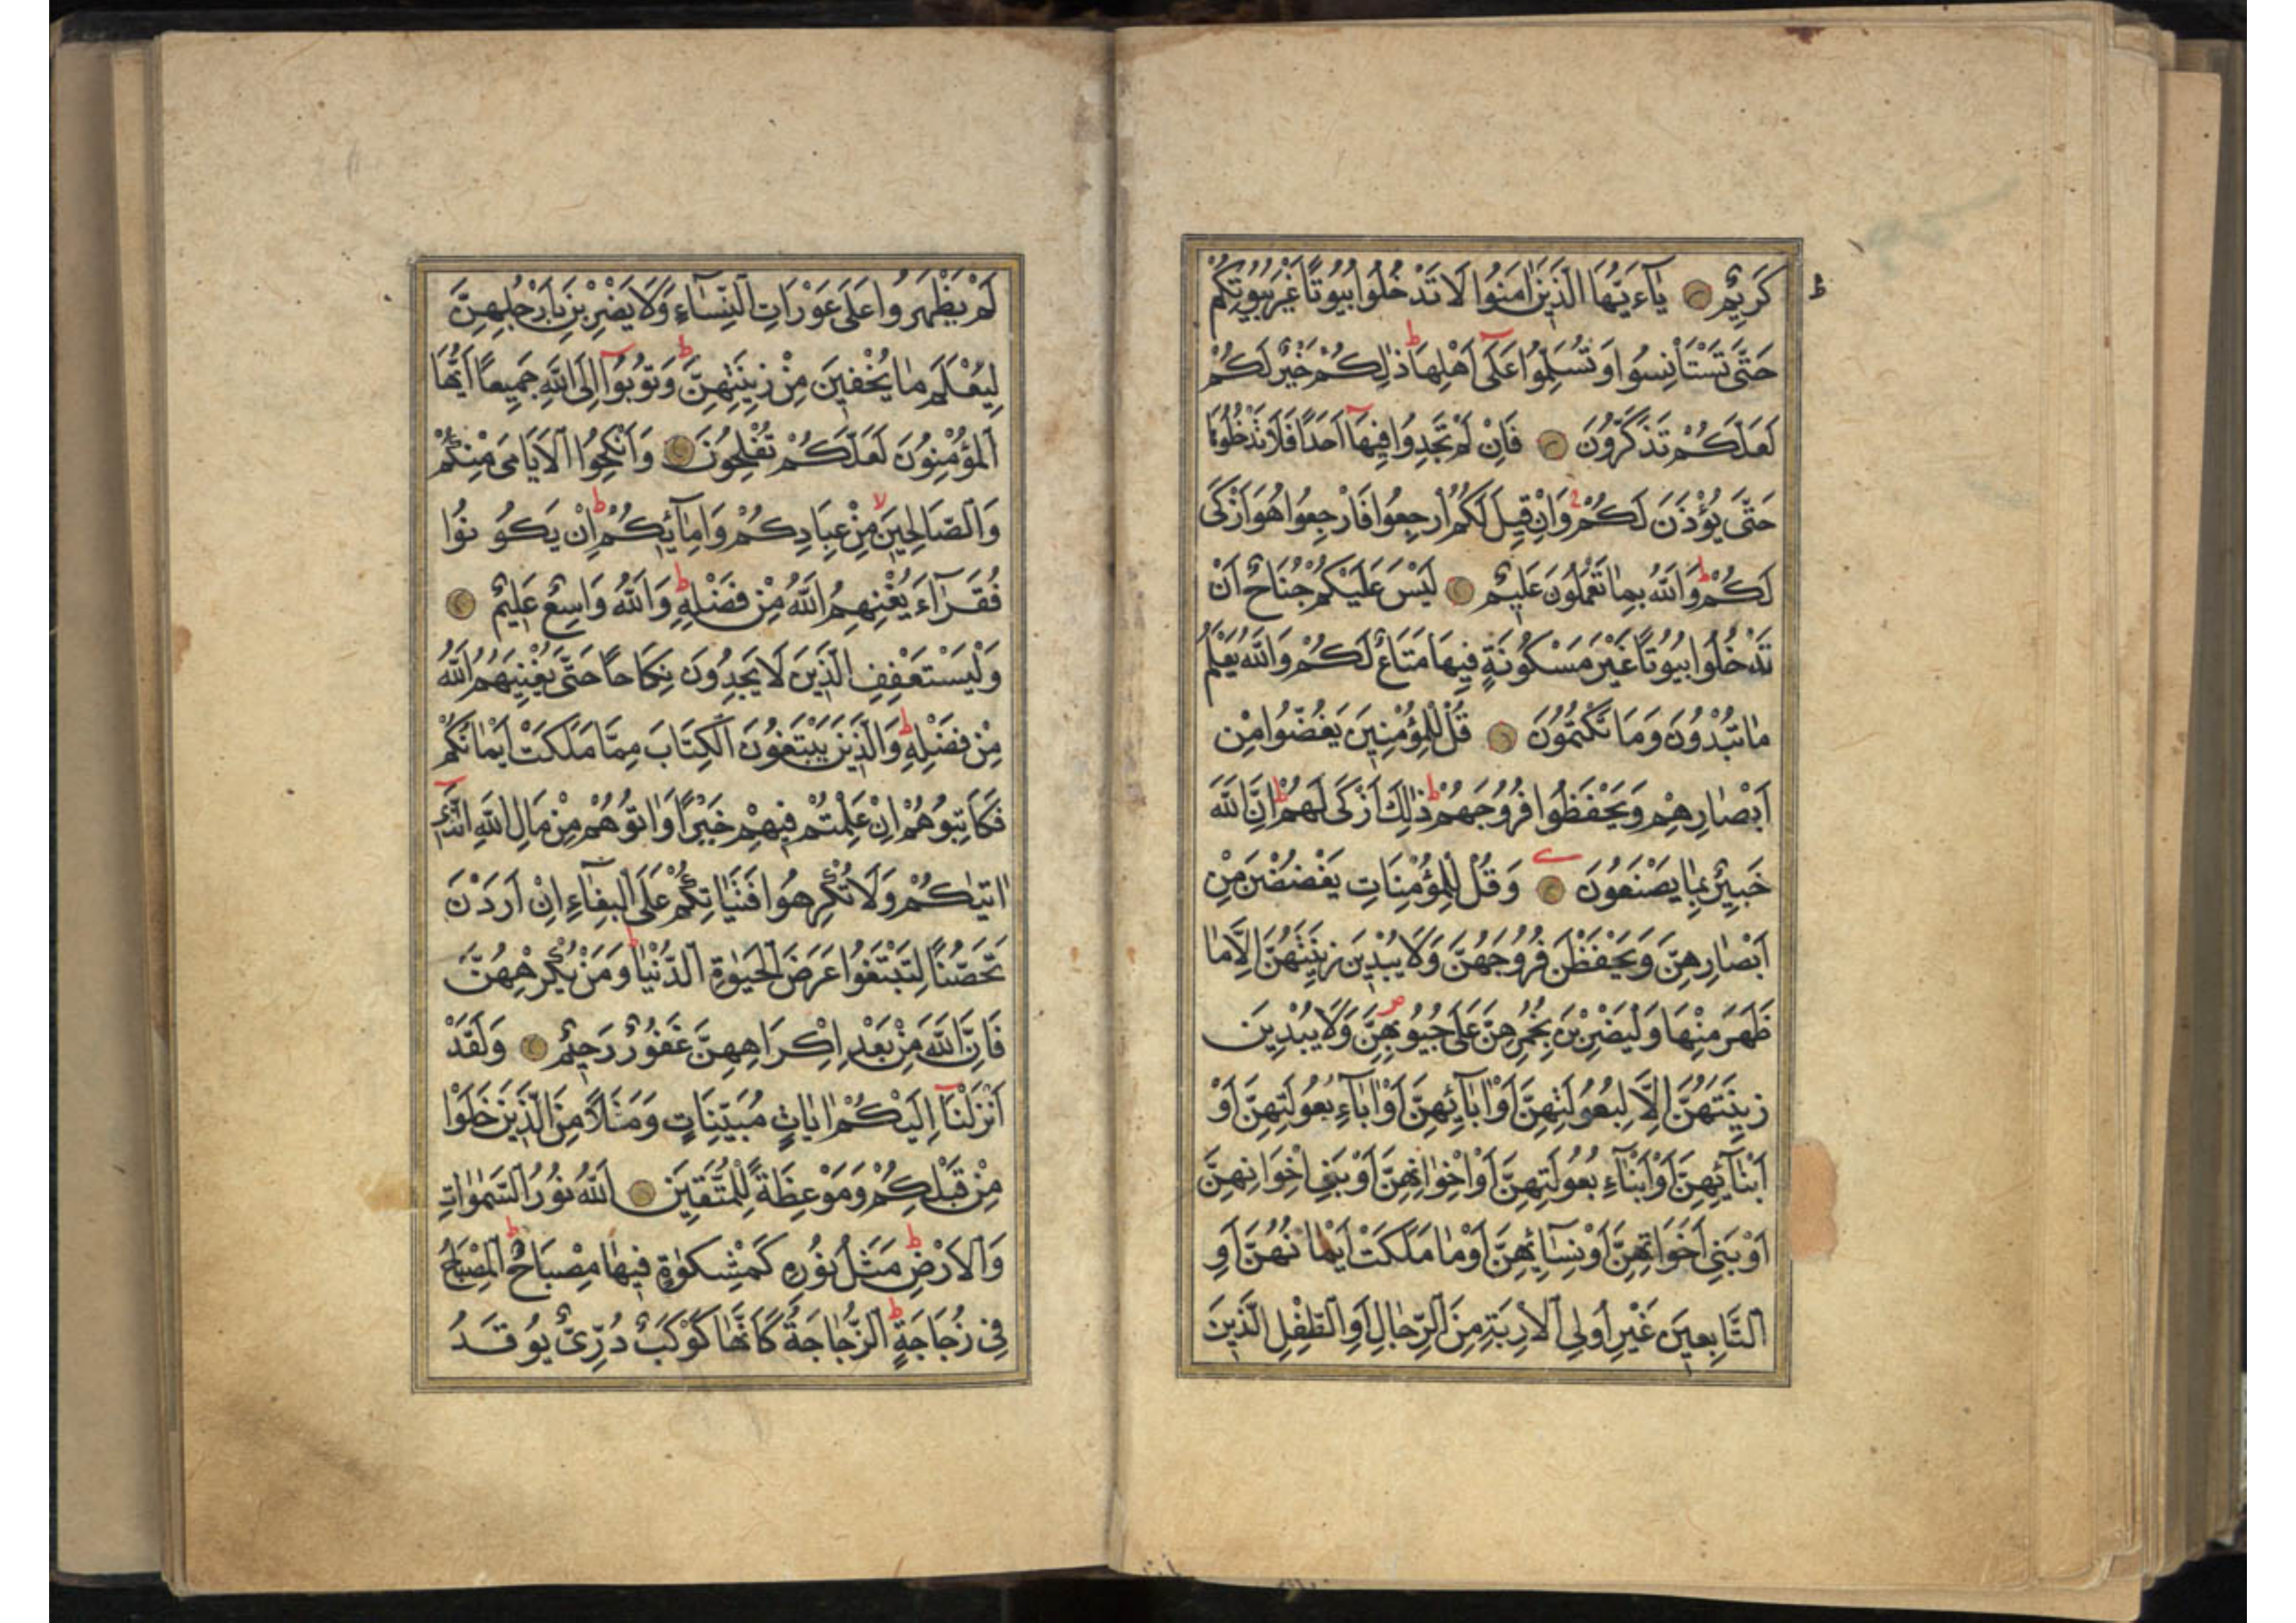 كَرِيمٌ يَاءَيُّهَا الَّذِينَ اٰمَنُوا لَا تَدْخُلُوا بُيُوتًا غَيْرَ بُيُوتِكُمْ
حَتَّى تَسْتَأْنِسُوا وَتُسَلِّمُوا عَلَى اَهْلِهَا ذٰلِكُمْ خَيْرٌ لَكُمْ
لَعَلَّكُمْ تَذَكَّرُونَ فَاِنْ لَمْ تَجِدُوا فِيهَا اَحَدًا فَلَا تَدْخُلُوهَا
حَتَّى يُؤْذَنَ لَكُمْ وَاِنْ قِيلَ لَكُمُ ارْجِعُوا فَارْجِعُوا هُوَ اَزْكَى
لَكُمْ وَاللّٰهُ بِمَا تَعْمَلُونَ عَلِيمٌ لَيْسَ عَلَيْكُمْ جُنَاحٌ اَنْ
تَدْخُلُوا بُيُوتًا غَيْرَ مَسْكُونَةٍ فِيهَا مَتَاعٌ لَكُمْ وَاللّٰهُ يَعْلَمُ
مَا تُبْدُونَ وَمَا تَكْتُمُونَ قُلْ لِلْمُؤْمِنِينَ يَغُضُّوا مِنْ
اَبْصَارِهِمْ وَيَحْفَظُوا فُرُوجَهُمْ ذٰلِكَ اَزْكَى لَهُمْ اِنَّ اللّٰهَ
خَبِيرٌ بِمَا يَصْنَعُونَ وَقُلْ لِلْمُؤْمِنَاتِ يَغْضُضْنَ مِنْ
اَبْصَارِهِنَّ وَيَحْفَظْنَ فُرُوجَهُنَّ وَلَا يُبْدِينَ زِينَتَهُنَّ اِلَّا مَا
ظَهَرَ مِنْهَا وَلْيَضْرِبْنَ بِخُمُرِهِنَّ عَلَى جُيُوبِهِنَّ وَلَا يُبْدِينَ
زِينَتَهُنَّ اِلَّا لِبُعُولَتِهِنَّ اَوْ اٰبَائِهِنَّ اَوْ اٰبَاءِ بُعُولَتِهِنَّ اَوْ
اَبْنَائِهِنَّ اَوْ اَبْنَاءِ بُعُولَتِهِنَّ اَوْ اِخْوَانِهِنَّ اَوْ بَنِي اِخْوَانِهِنَّ
اَوْ بَنِي اَخَوَاتِهِنَّ اَوْ نِسَائِهِنَّ اَوْ مَا مَلَكَتْ اَيْمَانُهُنَّ اَوِ
التَّابِعِينَ غَيْرِ اُولِي الْاِرْبَةِ مِنَ الرِّجَالِ اَوِ الطِّفْلِ الَّذِينَ
لَمْ يَظْهَرُوا عَلَى عَوْرَاتِ النِّسَاءِ وَلَا يَضْرِبْنَ بِاَرْجُلِهِنَّ
لِيُعْلَمَ مَا يُخْفِينَ مِنْ زِينَتِهِنَّ وَتُوبُوا اِلَى اللّٰهِ جَمِيعًا اَيُّهَا
الْمُؤْمِنُونَ لَعَلَّكُمْ تُفْلِحُونَ وَاَنْكِحُوا الْاَيَامَى مِنْكُمْ
وَالصَّالِحِينَ مِنْ عِبَادِكُمْ وَاِمَائِكُمْ اِنْ يَكُونُوا
فُقَرَاءَ يُغْنِهِمُ اللّٰهُ مِنْ فَضْلِهِ وَاللّٰهُ وَاسِعٌ عَلِيمٌ
وَلْيَسْتَعْفِفِ الَّذِينَ لَا يَجِدُونَ نِكَاحًا حَتَّى يُغْنِيَهُمُ اللّٰهُ
مِنْ فَضْلِهِ وَالَّذِينَ يَبْتَغُونَ الْكِتَابَ مِمَّا مَلَكَتْ اَيْمَانُكُمْ
فَكَاتِبُوهُمْ اِنْ عَلِمْتُمْ فِيهِمْ خَيْرًا وَاٰتُوهُمْ مِنْ مَالِ اللّٰهِ الَّذِي
اٰتٰيكُمْ وَلَا تُكْرِهُوا فَتَيَاتِكُمْ عَلَى الْبِغَاءِ اِنْ اَرَدْنَ
تَحَصُّنًا لِتَبْتَغُوا عَرَضَ الْحَيٰوةِ الدُّنْيَا وَمَنْ يُكْرِهْهُنَّ
فَاِنَّ اللّٰهَ مِنْ بَعْدِ اِكْرَاهِهِنَّ غَفُورٌ رَحِيمٌ وَلَقَدْ
اَنْزَلْنَا اِلَيْكُمْ اٰيَاتٍ مُبَيِّنَاتٍ وَمَثَلًا مِنَ الَّذِينَ خَلَوْا
مِنْ قَبْلِكُمْ وَمَوْعِظَةً لِلْمُتَّقِينَ اَللّٰهُ نُورُ السَّمٰوَاتِ
وَالْاَرْضِ مَثَلُ نُورِهِ كَمِشْكٰوةٍ فِيهَا مِصْبَاحٌ الْمِصْبَاحُ
فِي زُجَاجَةٍ الزُّجَاجَةُ كَاَنَّهَا كَوْكَبٌ دُرِّيٌّ يُوقَدُ